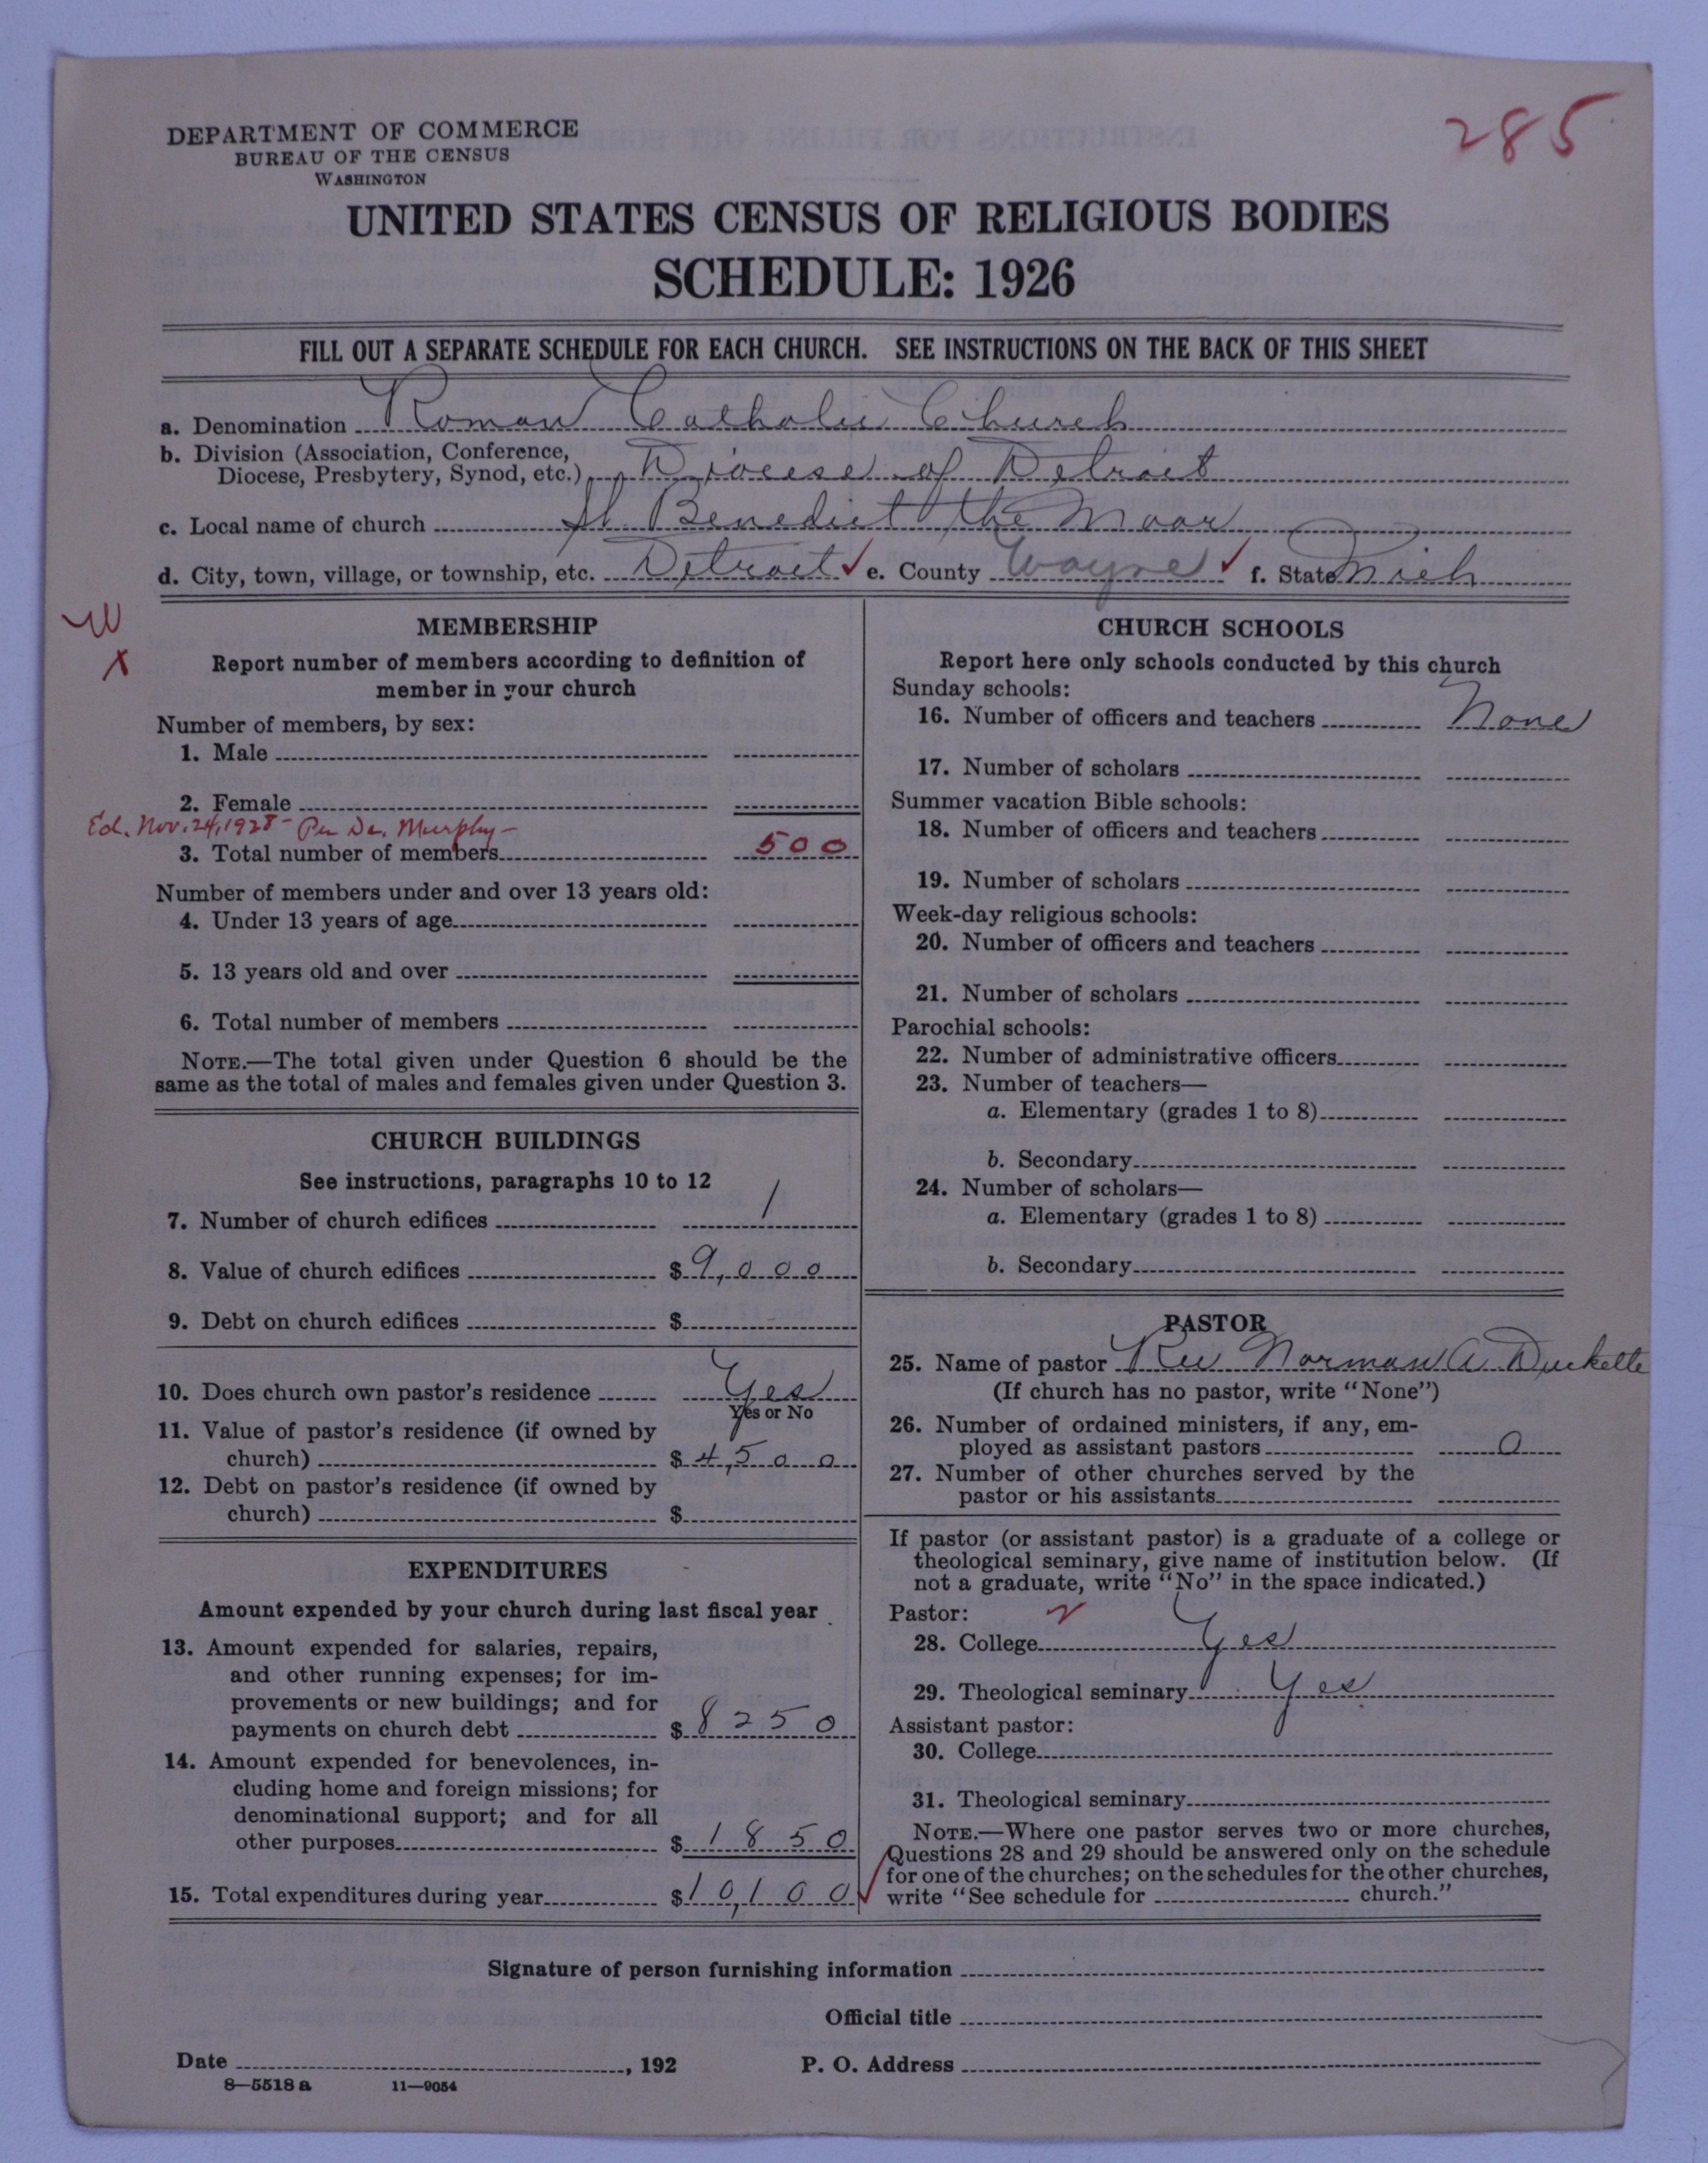 285
DEPARTMENT OF COMMERCE
BUREAU OF THE CENSUS
WASHINGTON
UNITED STATES CENSUS OF RELIGIOUS BODIES
SCHEDULE: 1926
FILL OUT A SEPARATE SCHEDULE FOR EACH CHURCH. SEE INSTRUCTIONS ON THE BACK OF THIS SHEET
a. Denomination Roman Catholic Church
b. Division (Association, Conference,
Diocese, Presbytery, Synod, etc.) Diocese of Detroit
c. Local name of church St. Benedict the Moor
d. City, town, village, or township, etc. Detroit ✓ e. County Wayne ✓ f. State Mich
W
X
MEMBERSHIP
Report number of members according to definition of
member in your church
Number of members, by sex:
1. Male
2. Female
Ed. Nov. 24, 1928 - Per Dr. Murphy -
3. Total number of members 500
Number of members under and over 13 years old:
4. Under 13 years of age
5. 13 years old and over
6. Total number of members
NOTE.—The total given under Question 6 should be the
same as the total of males and females given under Question 3.
CHURCH BUILDINGS
See instructions, paragraphs 10 to 12
7. Number of church edifices 1
8. Value of church edifices $ 9,000
9. Debt on church edifices $
10. Does church own pastor's residence Yes
Yes or No
11. Value of pastor's residence (if owned by
church) $ 4,500
12. Debt on pastor's residence (if owned by
church) $
EXPENDITURES
Amount expended by your church during last fiscal year
13. Amount expended for salaries, repairs,
and other running expenses; for im-
provements or new buildings; and for
payments on church debt $ 8250
14. Amount expended for benevolences, in-
cluding home and foreign missions; for
denominational support; and for all
other purposes $ 1850
15. Total expenditures during year $ 10,100 ✓
CHURCH SCHOOLS
Report here only schools conducted by this church
Sunday schools:
16. Number of officers and teachers None
17. Number of scholars
Summer vacation Bible schools:
18. Number of officers and teachers
19. Number of scholars
Week-day religious schools:
20. Number of officers and teachers
21. Number of scholars
Parochial schools:
22. Number of administrative officers
23. Number of teachers—
a. Elementary (grades 1 to 8)
b. Secondary
24. Number of scholars—
a. Elementary (grades 1 to 8)
b. Secondary
PASTOR
25. Name of pastor Rev Norman A Duckette
(If church has no pastor, write "None")
26. Number of ordained ministers, if any, em-
ployed as assistant pastors 0
27. Number of other churches served by the
pastor or his assistants
If pastor (or assistant pastor) is a graduate of a college or
theological seminary, give name of institution below. (If
not a graduate, write "No" in the space indicated.)
Pastor:
28. College Yes
29. Theological seminary Yes
Assistant pastor:
30. College
31. Theological seminary
NOTE.—Where one pastor serves two or more churches,
Questions 28 and 29 should be answered only on the schedule
for one of the churches; on the schedules for the other churches,
write "See schedule for church."
Signature of person furnishing information
Official title
Date , 192 P. O. Address
8—5518 a 11—9054